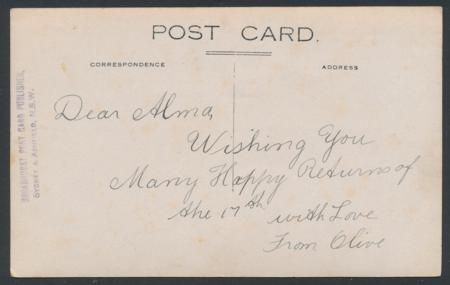 POST CARD.
CORRESPONDENCE
ADDRESS
BROADHURST POST CARD PUBLISHER,
SYDNEY & ASHFIELD, N.S.W.
Dear Alma,
Wishing You
Many Happy Returns of
the 17th with Love
From Olive